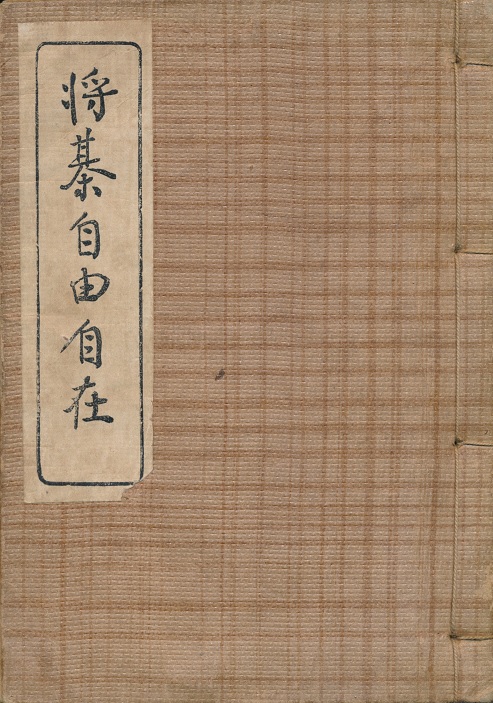 将棊自由自在